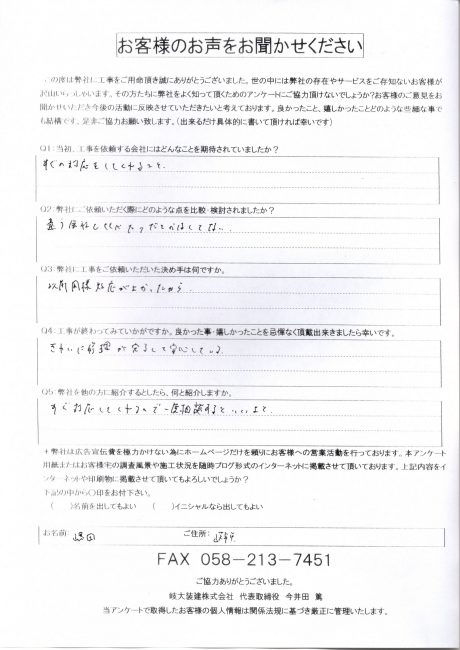 お客様のお声をお聞かせください
この度は弊社に工事をご用命頂き誠にありがとうございました。世の中には弊社の存在やサービスをご存知ないお客様が
沢山いらっしゃいます。その方たちに弊社をよく知って頂くためのアンケートにご協力頂けないでしょうか?お客様のご意見をお
聞かせいただき今後の活動に反映させていただきたいと考えております。良かったこと、嬉しかったことどのような些細な事で
も結構です、是非ご協力お願い致します。(出来るだけ具体的に書いて頂ければ幸いです)
Q1:当初、工事を依頼する会社にはどんなことを期待されていましたか?
すぐの対応をしてくれること。
Q2:弊社にご依頼いただく際にどのような点を比較・検討されましたか?
Q3:弊社に工事をご依頼いただいた決め手は何ですか。
以前同様対応がよかったから
Q4:工事が終わってみていかがですか。良かった事・嬉しかったことを忌憚なく頂戴出来きましたら幸いです。
きれいに修理が完了して安心している
Q5:弊社を他の方に紹介するとしたら、何と紹介しますか。
すぐ対応してくれるので一度相談するといいよと
+弊社は広告宣伝費を極力かけない為にホームページだけを頼りにお客様への営業活動を行っております。本アンケート
用紙またはお客様宅の調査風景や施工状況を随時ブログ形式のインターネットに掲載させて頂いております。上記内容をイ
ンターネットや印刷物に掲載させて頂いてもよろしいでしょうか?
下記の中から○印をお付下さい。
( )名前を出してもよい ( )イニシャルなら出してもよい
お名前: ご住所:
FAX 058-213-7451
ご協力ありがとうございました。
岐大装建株式会社 代表取締役 今井田 篤
当アンケートで取得したお客様の個人情報は関係法規に基づき厳正に管理いたします。